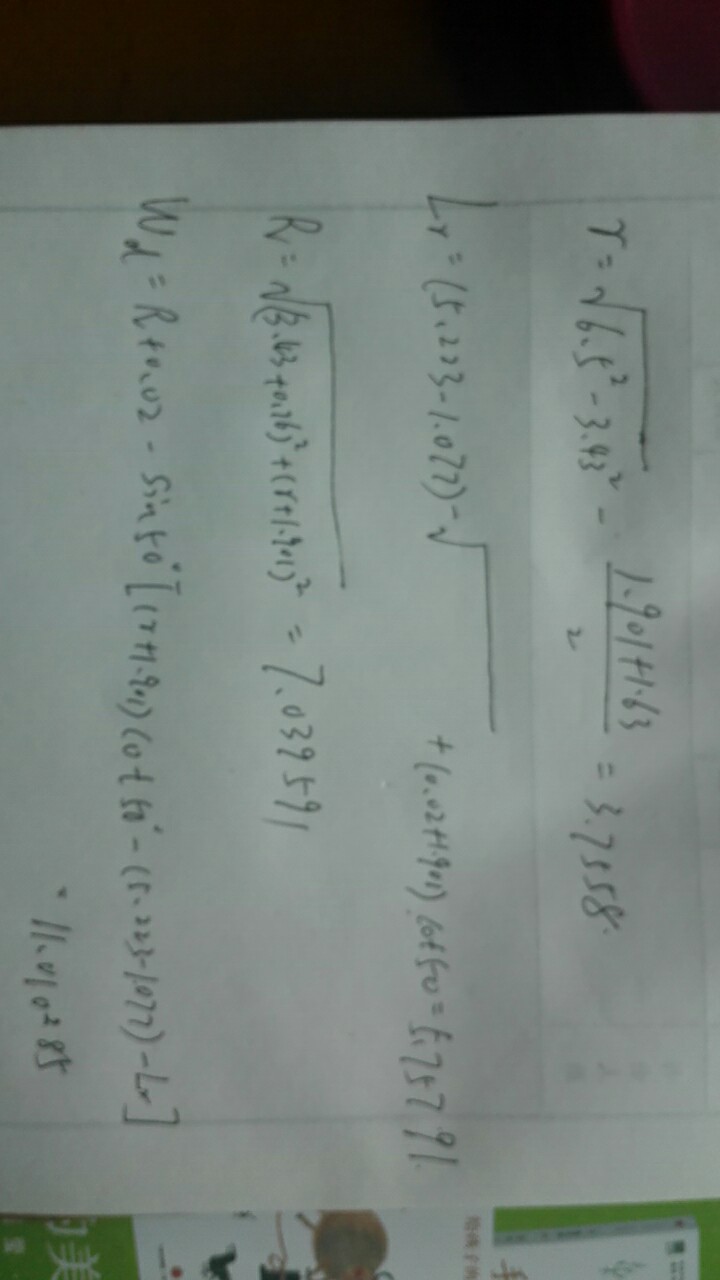 r = √(6.5² - 3.43²) - (1.901+1.63)/2 = 3.7558.
Lr = (5.223-1.077) - √ + (0.02+1.901) cot50 = 5.757 91.
R = √((3.43+0.26)² + (r+1.901)²) = 7.039591
Wd = R+0.02 - sin50°[(r+1.901)cot50° - (5.223-1.077) - Lr]
= 11.010285
美